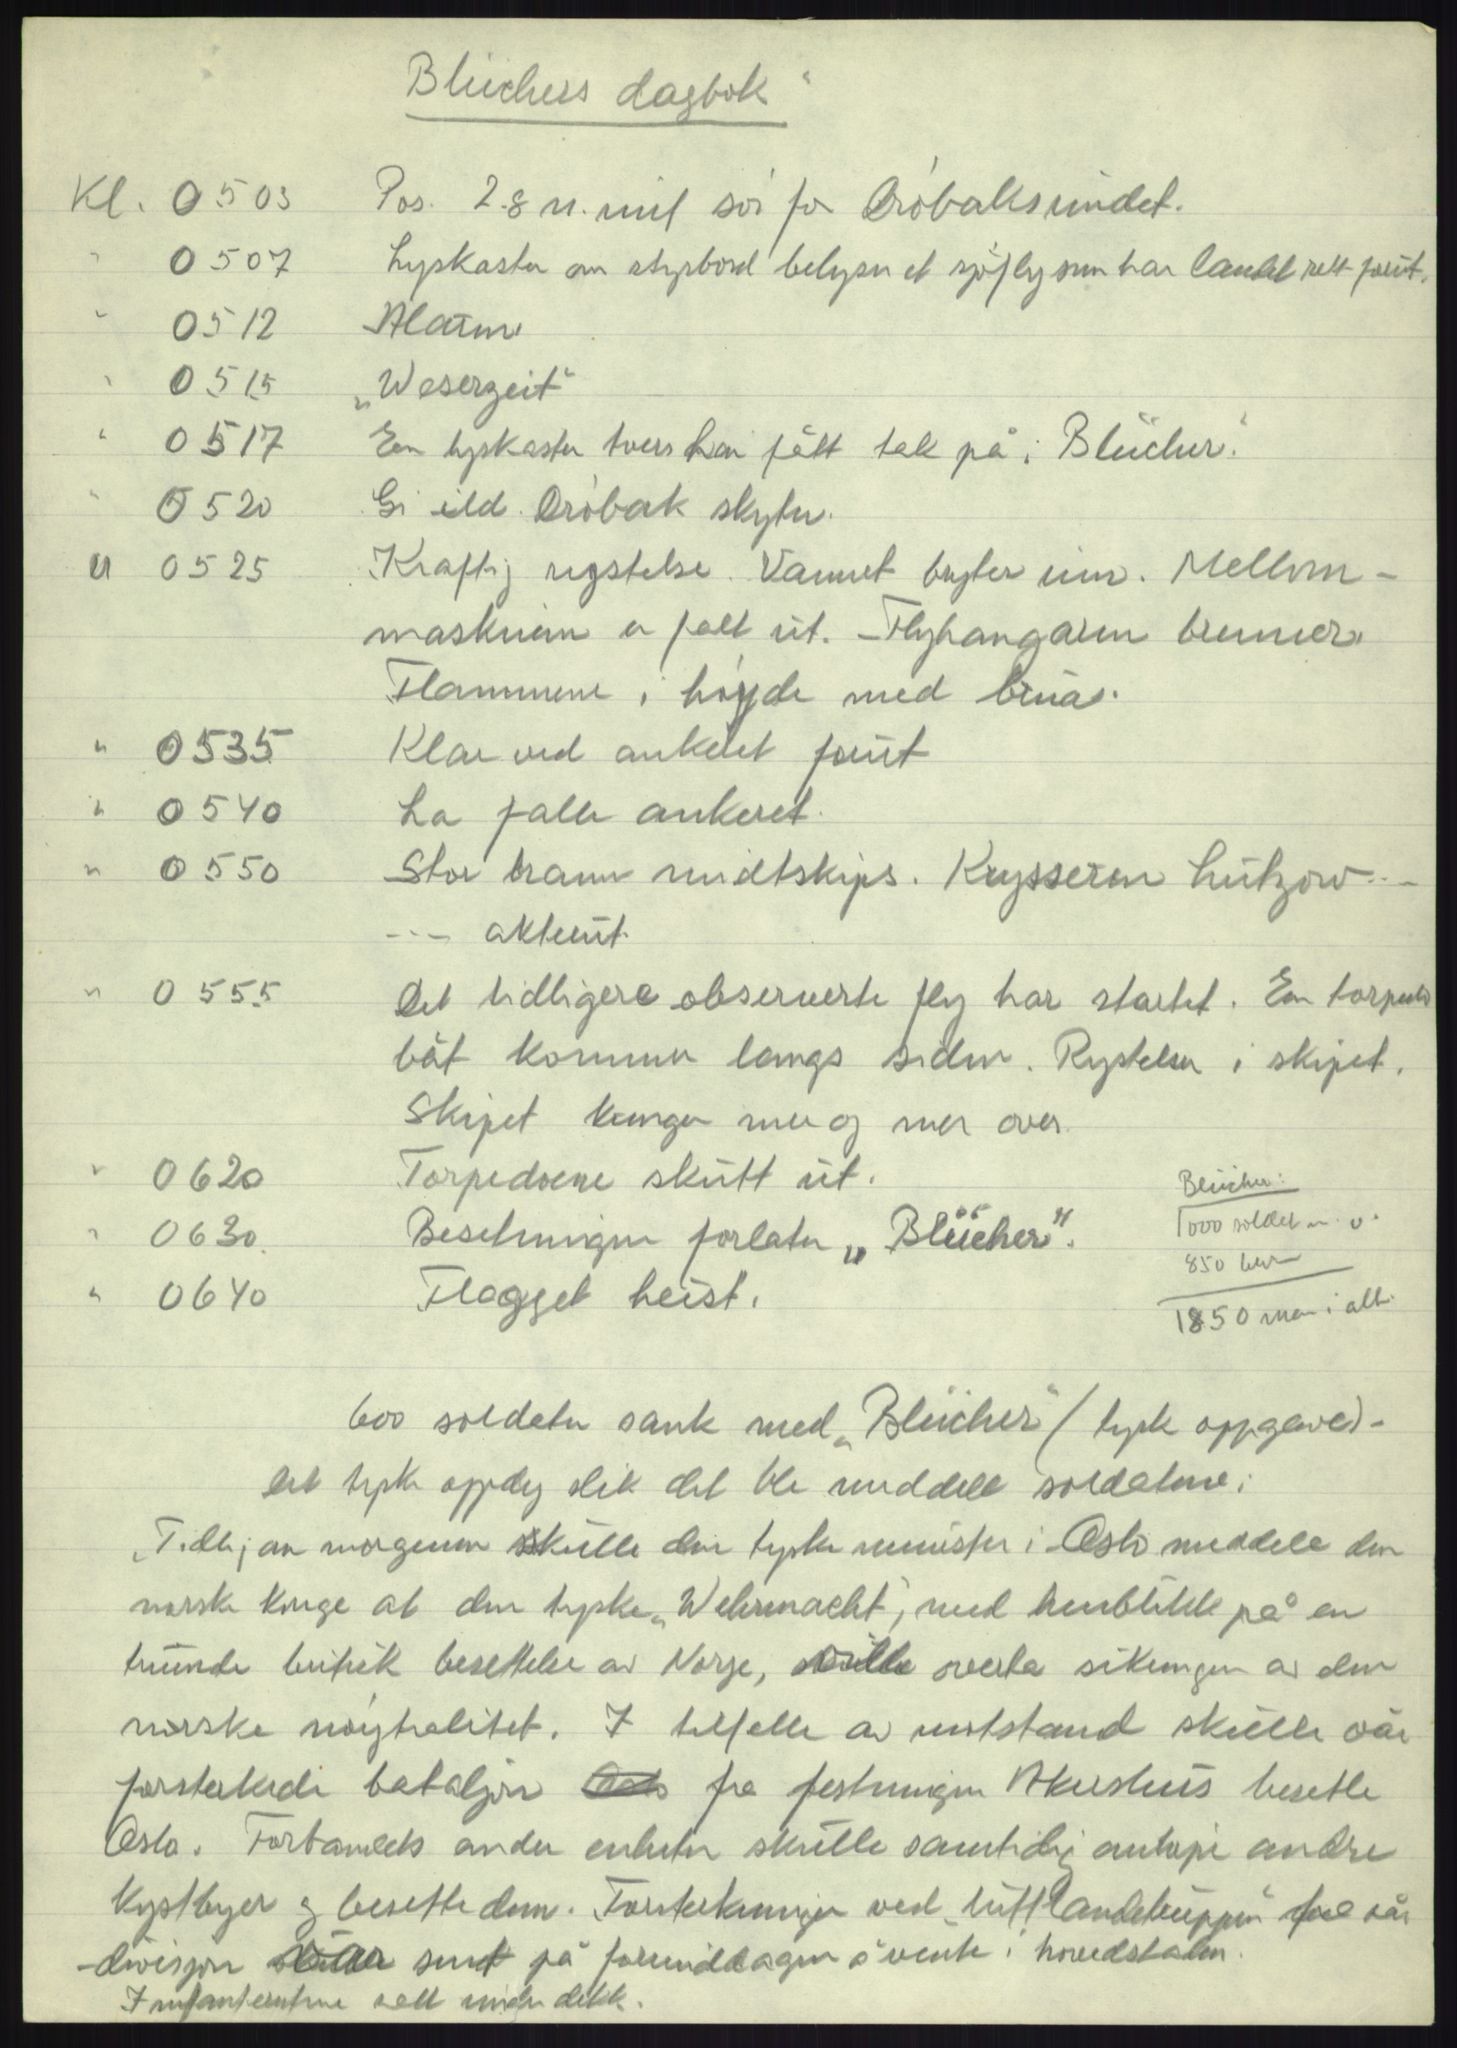 Blüchers dagbok"
Kl. 0503 Pos. 2.8 n. mil sör for Dröbaksundet.
" 0507 Lyskaster om styrbord belyser et sjöfly som har landet rett forut.
" 0512 Alarm
" 0515 „Weserzeit"
" 0517 En lyskaster tvers har fått tak på „Blücher".
" 0520 Gi ild. Dröbak skyter.
" 0525 Kraftig rystelse. Vannet bryter inn. Mellom-
maskinen er falt ut. Flyhangaren brenner.
Flammene i höyde med brua.
" 0535 Klar ved ankeret forut
" 0540 La falle ankeret.
" 0550 Stor brann midtskips. Krysseren Lützow ---
--- akterut.
" 0555 Det tidligere observerte fly har startet. En torpedo
båt kommer langs siden. Rystelser i skipet.
Skipet krenger mer og mer over.
" 0620 Torpedoene skutt ut.
" 0630. Besetningen forlater „Blücher".
" 0640 Flagget heist.
Blücher:
1000 soldater
850 
1850 man i alt.
600 soldater sank med „Blücher" (tysk oppgave) -
Det tyske oppdrag slik det ble meddelt soldatene:
„Tidlig om morgenen skulle den tyske minister i Oslo meddele den
norske konge at den tyske „Wehrmacht", med henblikk på en
truende britisk besettelse av Norge, ville overta sikringen av den
norske nöytralitet. I tilfelle av motstand skulle vår
forsterkede bataljon fra festningen Akershus besette
Oslo. Forbandets andre enheter skulle samtidig anlöpe andre
kystbyer og besette dem. Forsterkninger ved „luftlandetruppen" fra vår
divisjon sent på formiddagen å vente i hovedstaden.
Infanteristene rett under dekk.